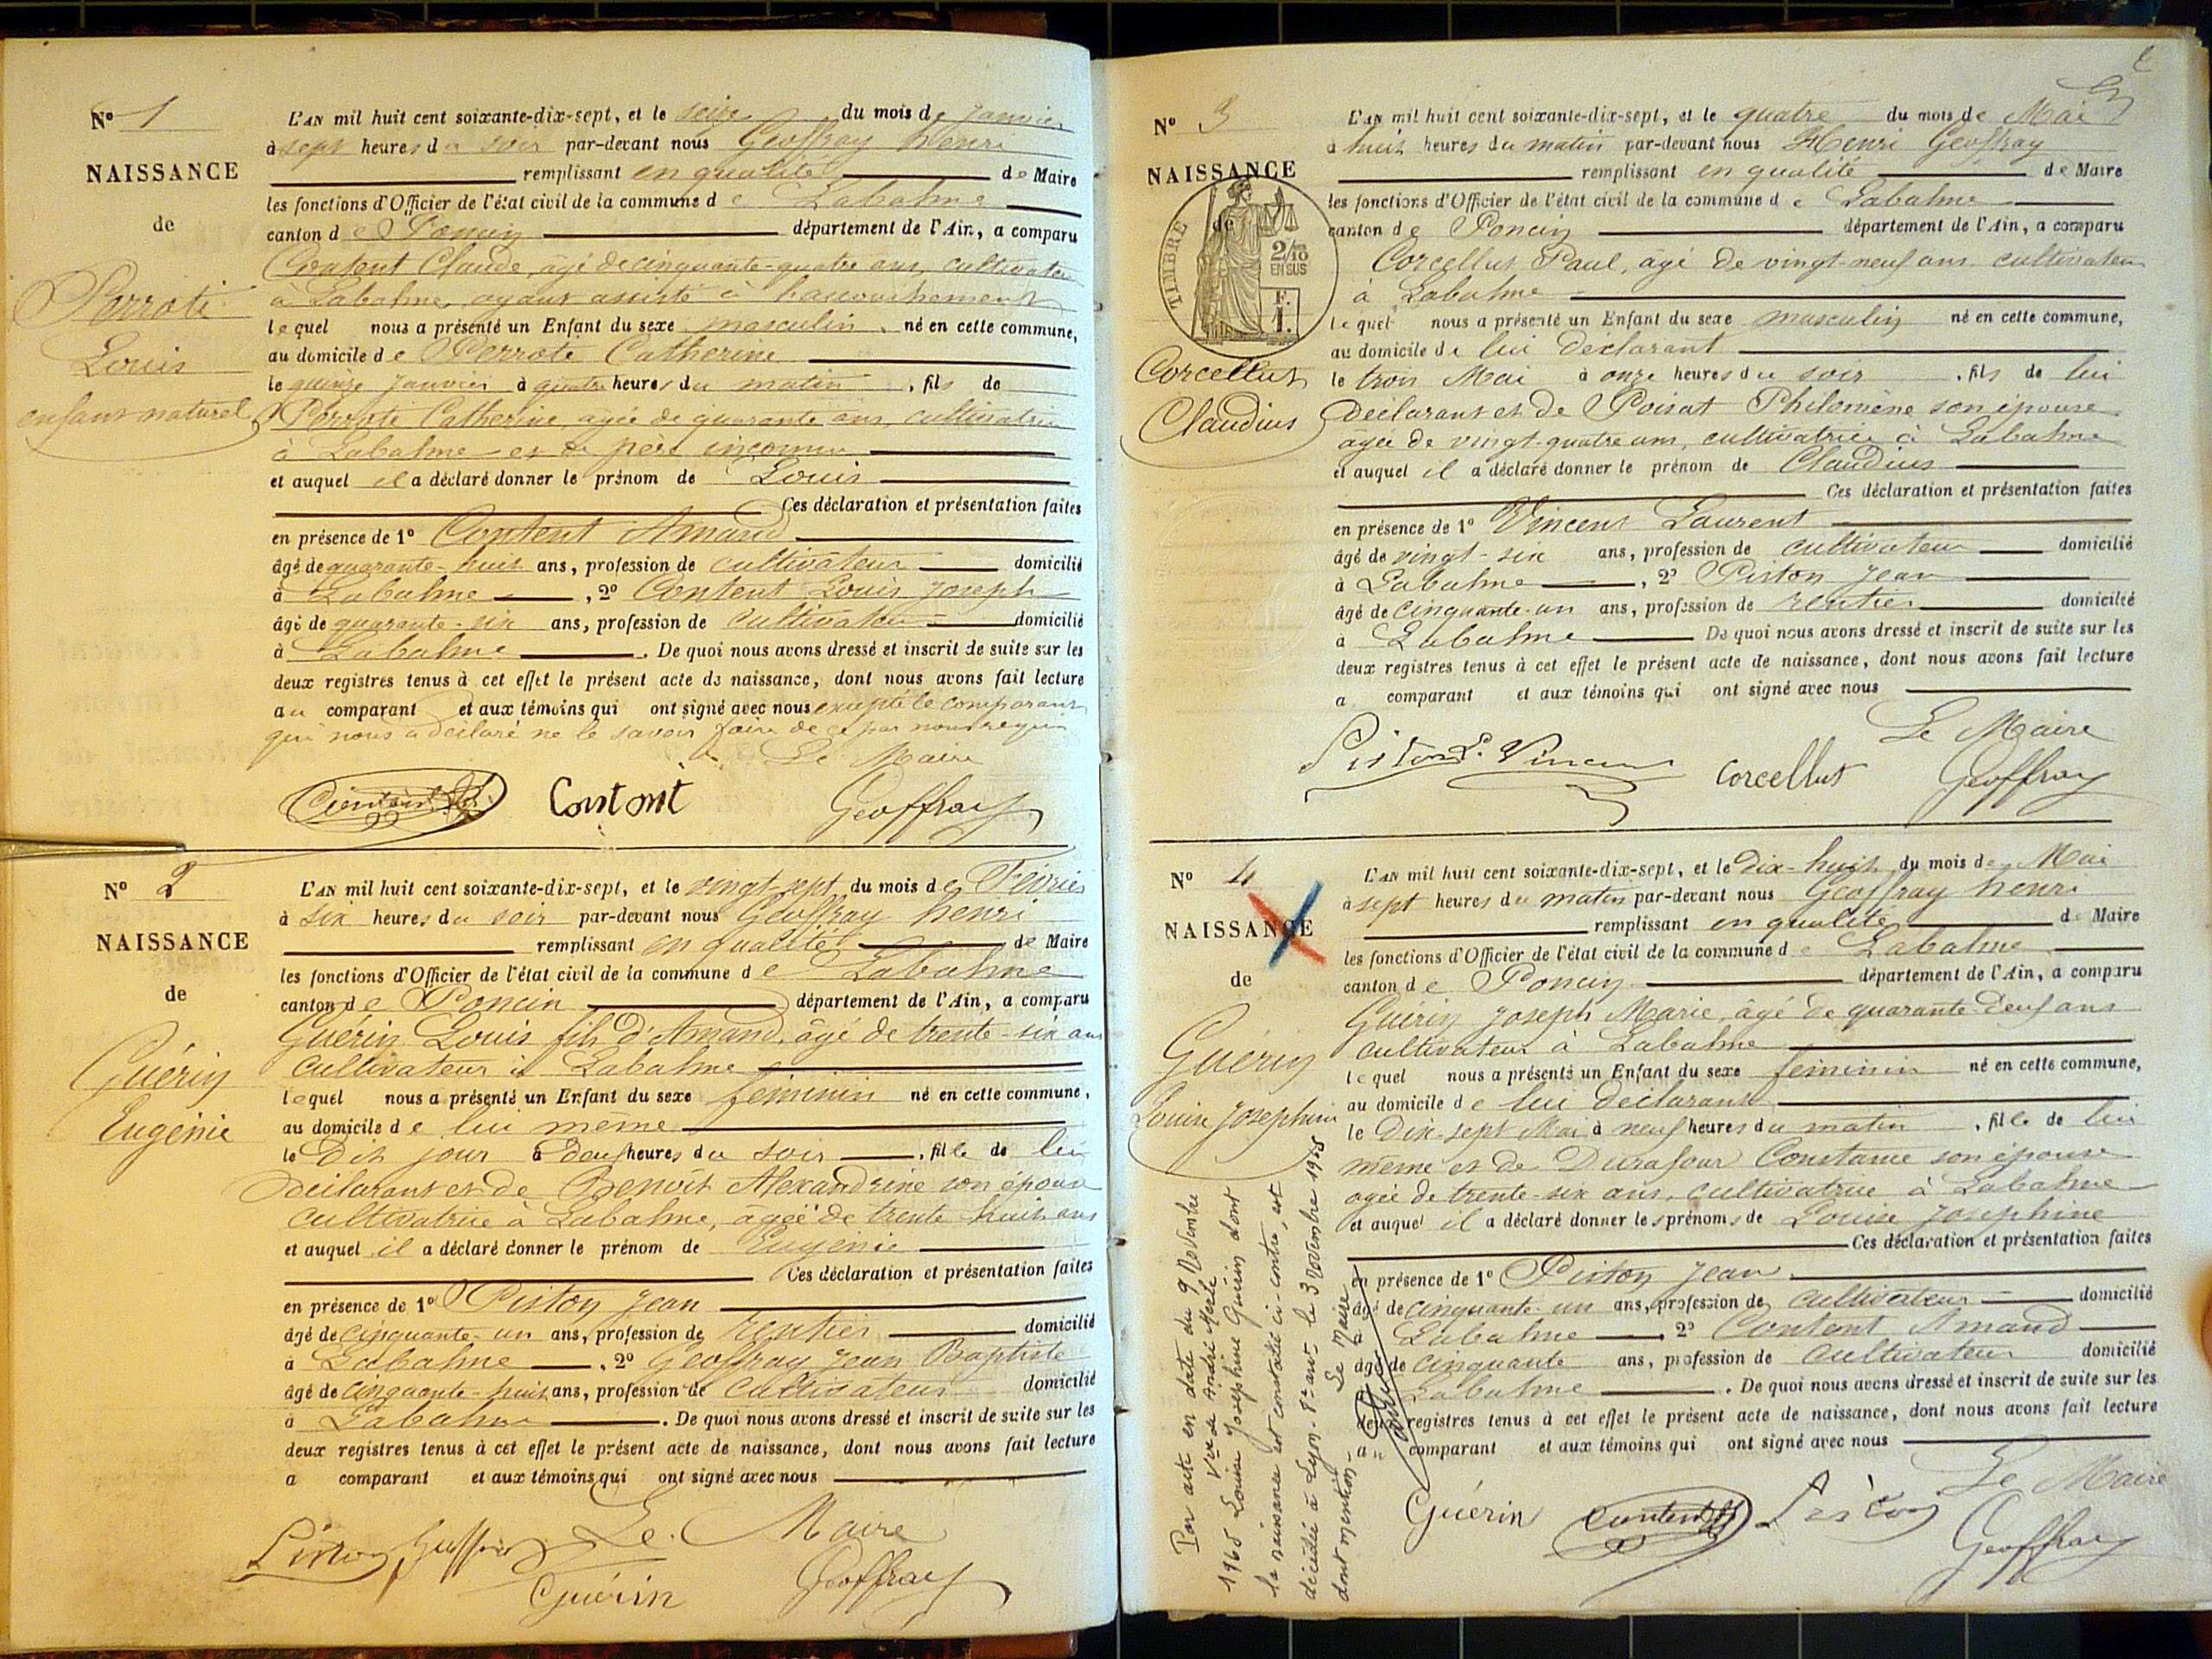 N° 1
NAISSANCE
de
Perroti
Louis
enfant naturel
L'AN mil huit cent soixante-dix-sept, et le seize du mois de Janvier
à sept heures du soir par-devant nous Geoffray henri
remplissant en qualité de Maire
les fonctions d'Officier de l'état civil de la commune de Labalme
canton de Poncin département de l'Ain, a comparu
Content Claude, âgé de cinquante-quatre ans, cultivateur
à Labalme, ayant assisté à l'accouchement
lequel nous a présenté un Enfant du sexe masculin, né en cette commune,
au domicile de Perroti Catherine
le quinze Janvier à quatre heures du matin, fils de
Perroti Catherine, agée de quarante ans, cultivatrice
à Labalme et de père inconnu
et auquel il a déclaré donner le prénom de Louis
Ces déclaration et présentation faites
en présence de 1° Content Amand
âgé de quarante-huit ans, profession de cultivateur domicilié
à Labalme, 2° Content Louis Joseph
âgé de quarante-six ans, profession de cultivateur domicilié
à Labalme. De quoi nous avons dressé et inscrit de suite sur les
deux registres tenus à cet effet le présent acte de naissance, dont nous avons fait lecture
au comparant et aux témoins qui ont signé avec nous excepté le comparant
qui nous a déclaré ne le savoir faire de ce par nous requis
Le Maire
Contont Geoffray
N° 2
NAISSANCE
de
Guérin
Eugénie
L'AN mil huit cent soixante-dix-sept, et le vingt-sept du mois de Février
à six heures du soir par-devant nous Geoffray henri
remplissant en qualité de Maire
les fonctions d'Officier de l'état civil de la commune de Labalme
canton de Poncin département de l'Ain, a comparu
Guérin Louis fils d'Amand, âgé de trente-six ans
cultivateur à Labalme
lequel nous a présenté un Enfant du sexe féminin né en cette commune,
au domicile de lui même
le Dit jour à deux heures du soir, fille de lui
déclarant et de Benoît Alexandrine son épouse
cultivatrice à Labalme, âgée de trente-huit ans
et auquel il a déclaré donner le prénom de Eugénie
Ces déclaration et présentation faites
en présence de 1° Piston Jean
âgé de cinquante-un ans, profession de rentier domicilié
à Labalme, 2° Geoffray Jean Baptiste
âgé de cinquante-huit ans, profession de cultivateur domicilié
à Labalme. De quoi nous avons dressé et inscrit de suite sur les
deux registres tenus à cet effet le présent acte de naissance, dont nous avons fait lecture
a comparant et aux témoins qui ont signé avec nous
Le Maire
Piston
Guérin Geoffray
N° 3
NAISSANCE
de
TIMBRE
2/10
EN SUS
F.
1.
Corcellut
Claudius
L'AN mil huit cent soixante-dix-sept, et le quatre du mois de Mai
à huit heures du matin par-devant nous Henri Geoffray
remplissant en qualité de Maire
les fonctions d'Officier de l'état civil de la commune de Labalme
canton de Poncin département de l'Ain, a comparu
Corcellut Paul, âgé de vingt-neuf ans cultivateur
à Labalme
lequel nous a présenté un Enfant du sexe masculin né en cette commune,
au domicile de lui déclarant
le trois Mai à onze heures du soir, fils de lui
déclarant et de Poisat Philomène son épouse
agée de vingt-quatre ans, cultivatrice à Labalme
et auquel il a déclaré donner le prénom de Claudius
Ces déclaration et présentation faites
en présence de 1° Vincent Laurent
âgé de vingt-six ans, profession de cultivateur domicilié
à Labalme, 2° Piston Jean
âgé de cinquante-un ans, profession de rentier domicilié
à Labalme De quoi nous avons dressé et inscrit de suite sur les
deux registres tenus à cet effet le présent acte de naissance, dont nous avons fait lecture
a comparant et aux témoins qui ont signé avec nous
Le Maire
Piston L. Vincent Corcellut Geoffray
N° 4
NAISSANCE
de
Guérin
Louise Joséphine
L'AN mil huit cent soixante-dix-sept, et le Dix-huit du mois de Mai
à sept heures du matin par-devant nous Geoffray henri
remplissant en qualité de Maire
les fonctions d'Officier de l'état civil de la commune de Labalme
canton de Poncin département de l'Ain, a comparu
Guérin Joseph Marie, âgé de quarante-deux ans
cultivateur à Labalme
lequel nous a présenté un Enfant du sexe féminin né en cette commune,
au domicile de lui déclarant
le Dix-sept Mai à neuf heures du matin, fille de lui
même et de Durafour Constance son épouse
agée de trente-six ans, cultivatrice à Labalme
et auquel il a déclaré donner les prénoms de Louise Joséphine
Ces déclaration et présentation faites
en présence de 1° Piston Jean
âgé de cinquante-un ans, profession de cultivateur domicilié
à Labalme, 2° Content Amand
âgé de cinquante ans, profession de cultivateur domicilié
à Labalme. De quoi nous avons dressé et inscrit de suite sur les
deux registres tenus à cet effet le présent acte de naissance, dont nous avons fait lecture
au comparant et aux témoins qui ont signé avec nous
Le Maire
Guérin Content Piston Geoffray
Par acte en date du 9 Novembre
1968 Louise Joséphine Guérin dont
Vve de André Merle
la naissance est constatée ci-contre, est
décédée à Lyon - 8e arrt le 3 Novembre 1968
dont mention - Le Maire